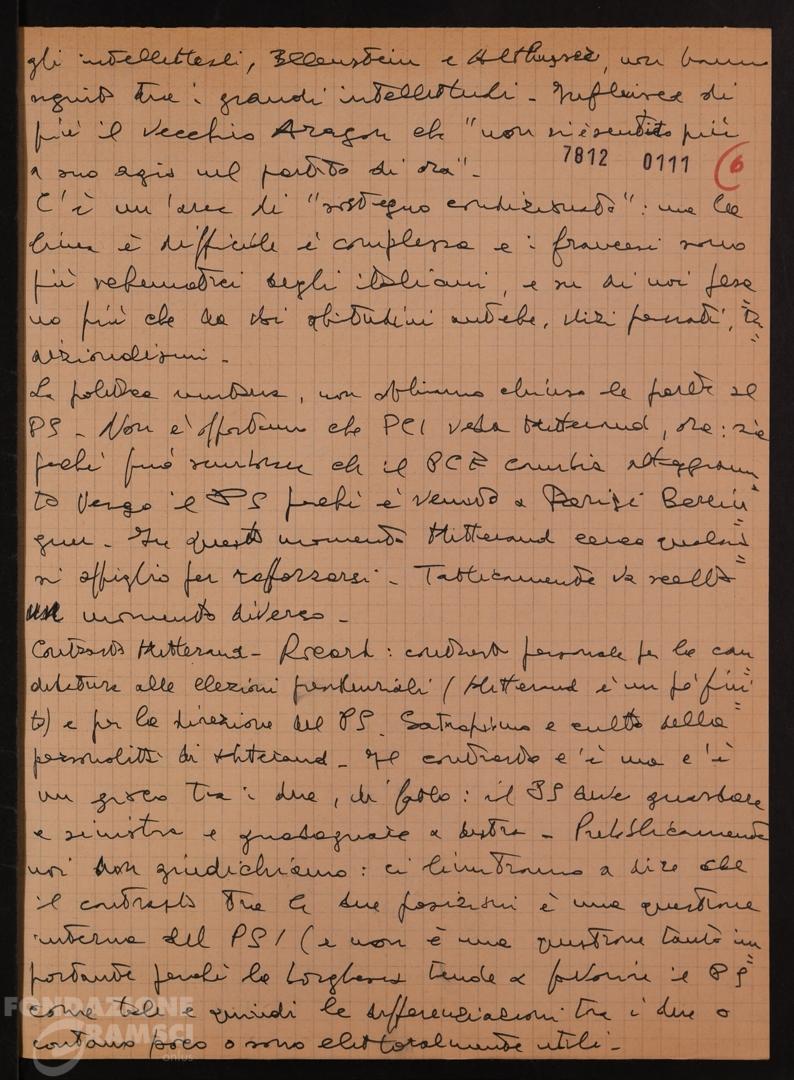 gli intellettuali, Ellenstein e Althusser, non hanno
seguito tra i grandi intellettuali - Influisce di
più il vecchio Aragon che "non si è sentito più
a suo agio nel partito di ora".
7812 0111 6
C'è un'area di "sostegno condizionato": ma la
linea è difficile è complessa e i francesi sono
più schematici degli italiani, e su di noi pesa
no più che da voi abitudini antiche, vizi passati, tra=
dizionalismi -
La politica unitaria, non abbiamo chiuso le porte al
PS - Non è opportuno che PCI veda Mitterand, ora: sia
perché può sembrare che il PCF cambia atteggiamen=
to verso il PS perché è venuto a Parigi Berlin=
guer - In questo momento Mitterand cerca qualsia=
si appiglio per rafforzarsi - Tatticamente va scelto
un momento diverso -
Contrasto Mitterand - Rocard: contrasto personale per la can=
didatura alle elezioni presidenziali (Mitterand è un po' fini=
to) e per la direzione del PS. Satrapismo e culto della
personalità di Mitterand - Il contrasto c'è ma c'è
un gioco tra i due, di fatto: il PS deve guardare
a sinistra e guadagnare a destra - Pubblicamente
noi non giudichiamo: ci limitiamo a dire che
il contrasto tra le due posizioni è una questione
interna del PS! (e non è una questione tanto im=
portante perché la borghesia tende a favorire il PS
come tale e quindi le differenziazioni tra i due o
contano poco o sono elettoralmente utili -
FONDAZIONE
GRAMSCI
onlus